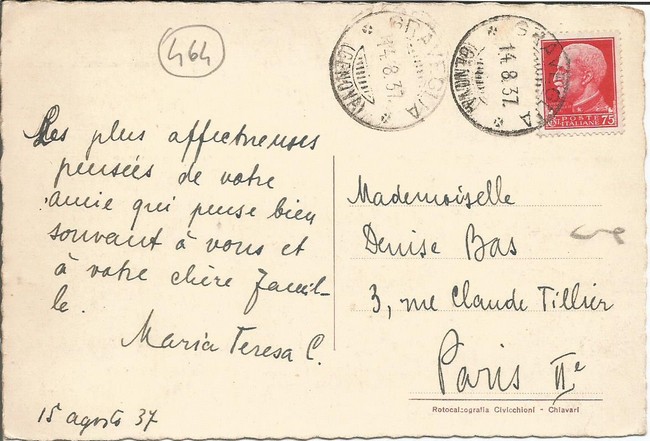 464
GRAVEGLIA
14.8.37.
(GENOVA)
GRAVEGLIA
14.8.37.
(GENOVA)
POSTE
ITALIANE
75
Les plus affectueuses
pensées de votre
amie qui pense bien
souvant à vous et
à votre chère famil-
le.
Maria Teresa C.
15 agosto 37
Mademoiselle
Denise Bas
3, rue Claude Tillier
Paris
Rotocalcografia Civicchioni - Chiavari